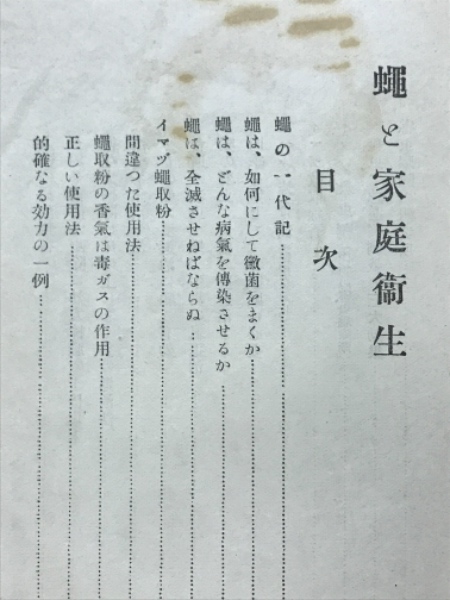 蠅と家庭衞生
目次
蠅の一代記
蠅は、如何にして黴菌をまくか
蠅は、どんな病氣を傳染させるか
蠅は、全滅させねばならぬ
イマヅ蠅取粉
間違つた使用法
蠅取粉の香氣は毒ガスの作用
正しい使用法
的確なる効力の一例